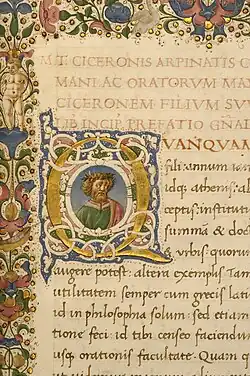 M. T. CICERONIS ARPINATIS C
MANI AC ORATORVM MAX
CICERONEM FILIVM SV
LIB INCIP PREFATIO GNAL
QVANQVAM
fili: annum iam
idq; athenis: a
ceptis: institut
summā & doc
Vrbis quorum
augere potest: alterā exemplis Tam
utilitatem semper cum grecis latin
id in philosophia solum: sed etiam
tione feci: id tibi censeo faciendu
usq orationis facultate. Quam q